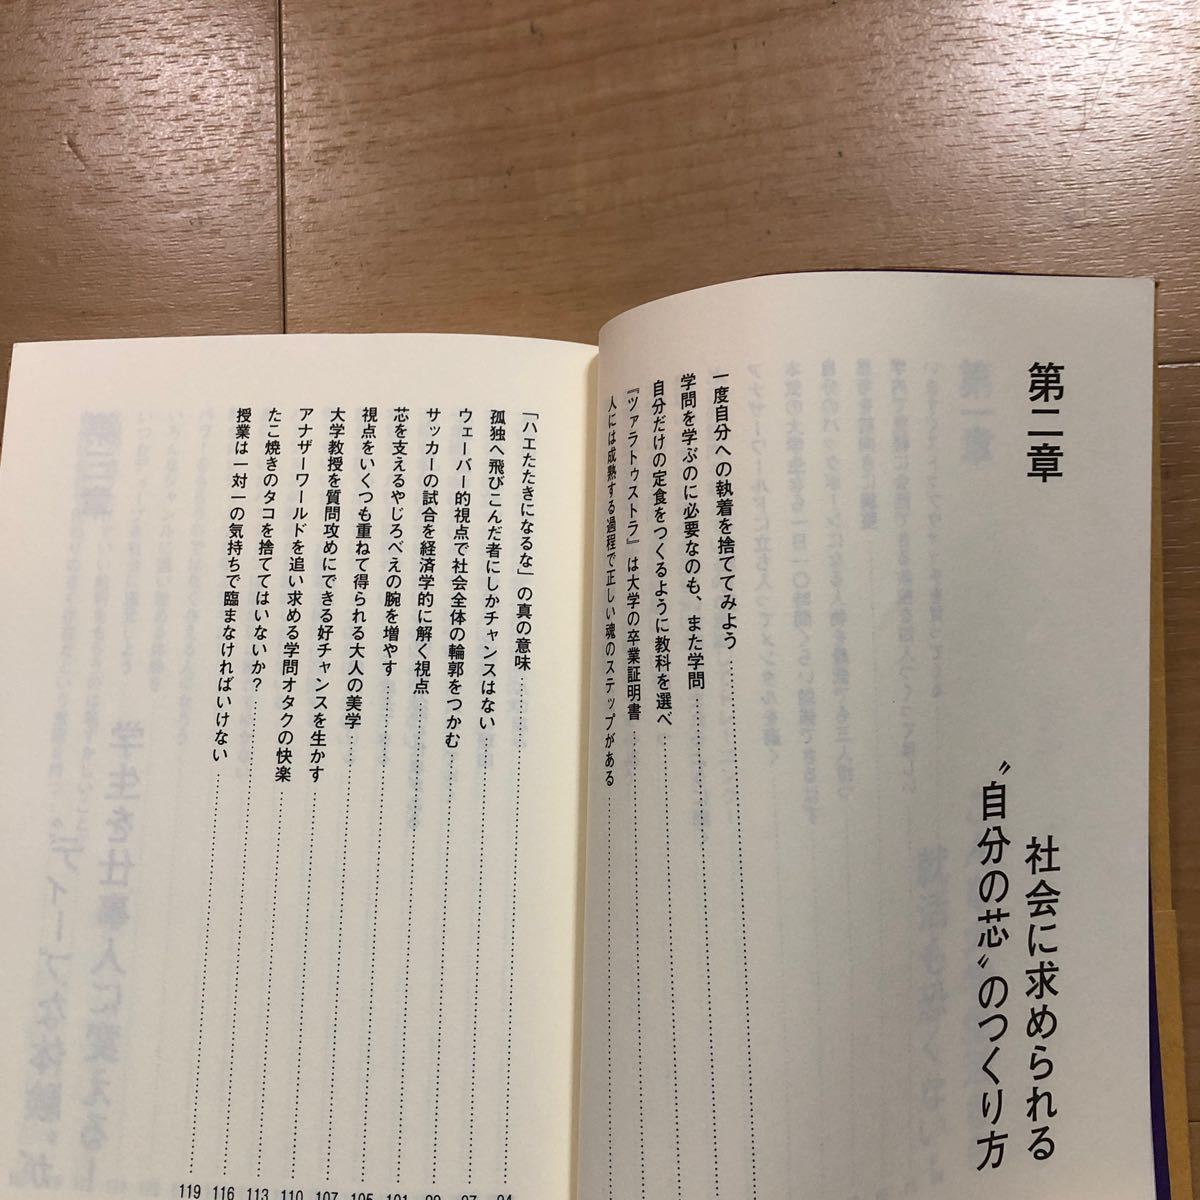 第二章
社会に求められる
〝自分の芯〟のつくり方
一度自分への執着を捨ててみよう
学問を学ぶのに必要なのも、また学問
自分だけの定食をつくるように教科を選べ
『ツァラトゥストラ』は大学の卒業証明書
人には成熟する過程で正しい魂のステップがある
「ハエたたきになるな」の真の意味
孤独へ飛びこんだ者にしかチャンスはない
ウェーバー的視点で社会全体の輪郭をつかむ
サッカーの試合を経済学的に解く視点
芯を支えるやじろべえの腕を増やす
視点をいくつも重ねて得られる大人の美学 105
大学教授を質問攻めにできる好チャンスを生かす 107
アナザーワールドを追い求める学問オタクの快楽 110
たこ焼きのタコを捨ててはいないか? 113
授業は一対一の気持ちで臨まなければいけない 116
119